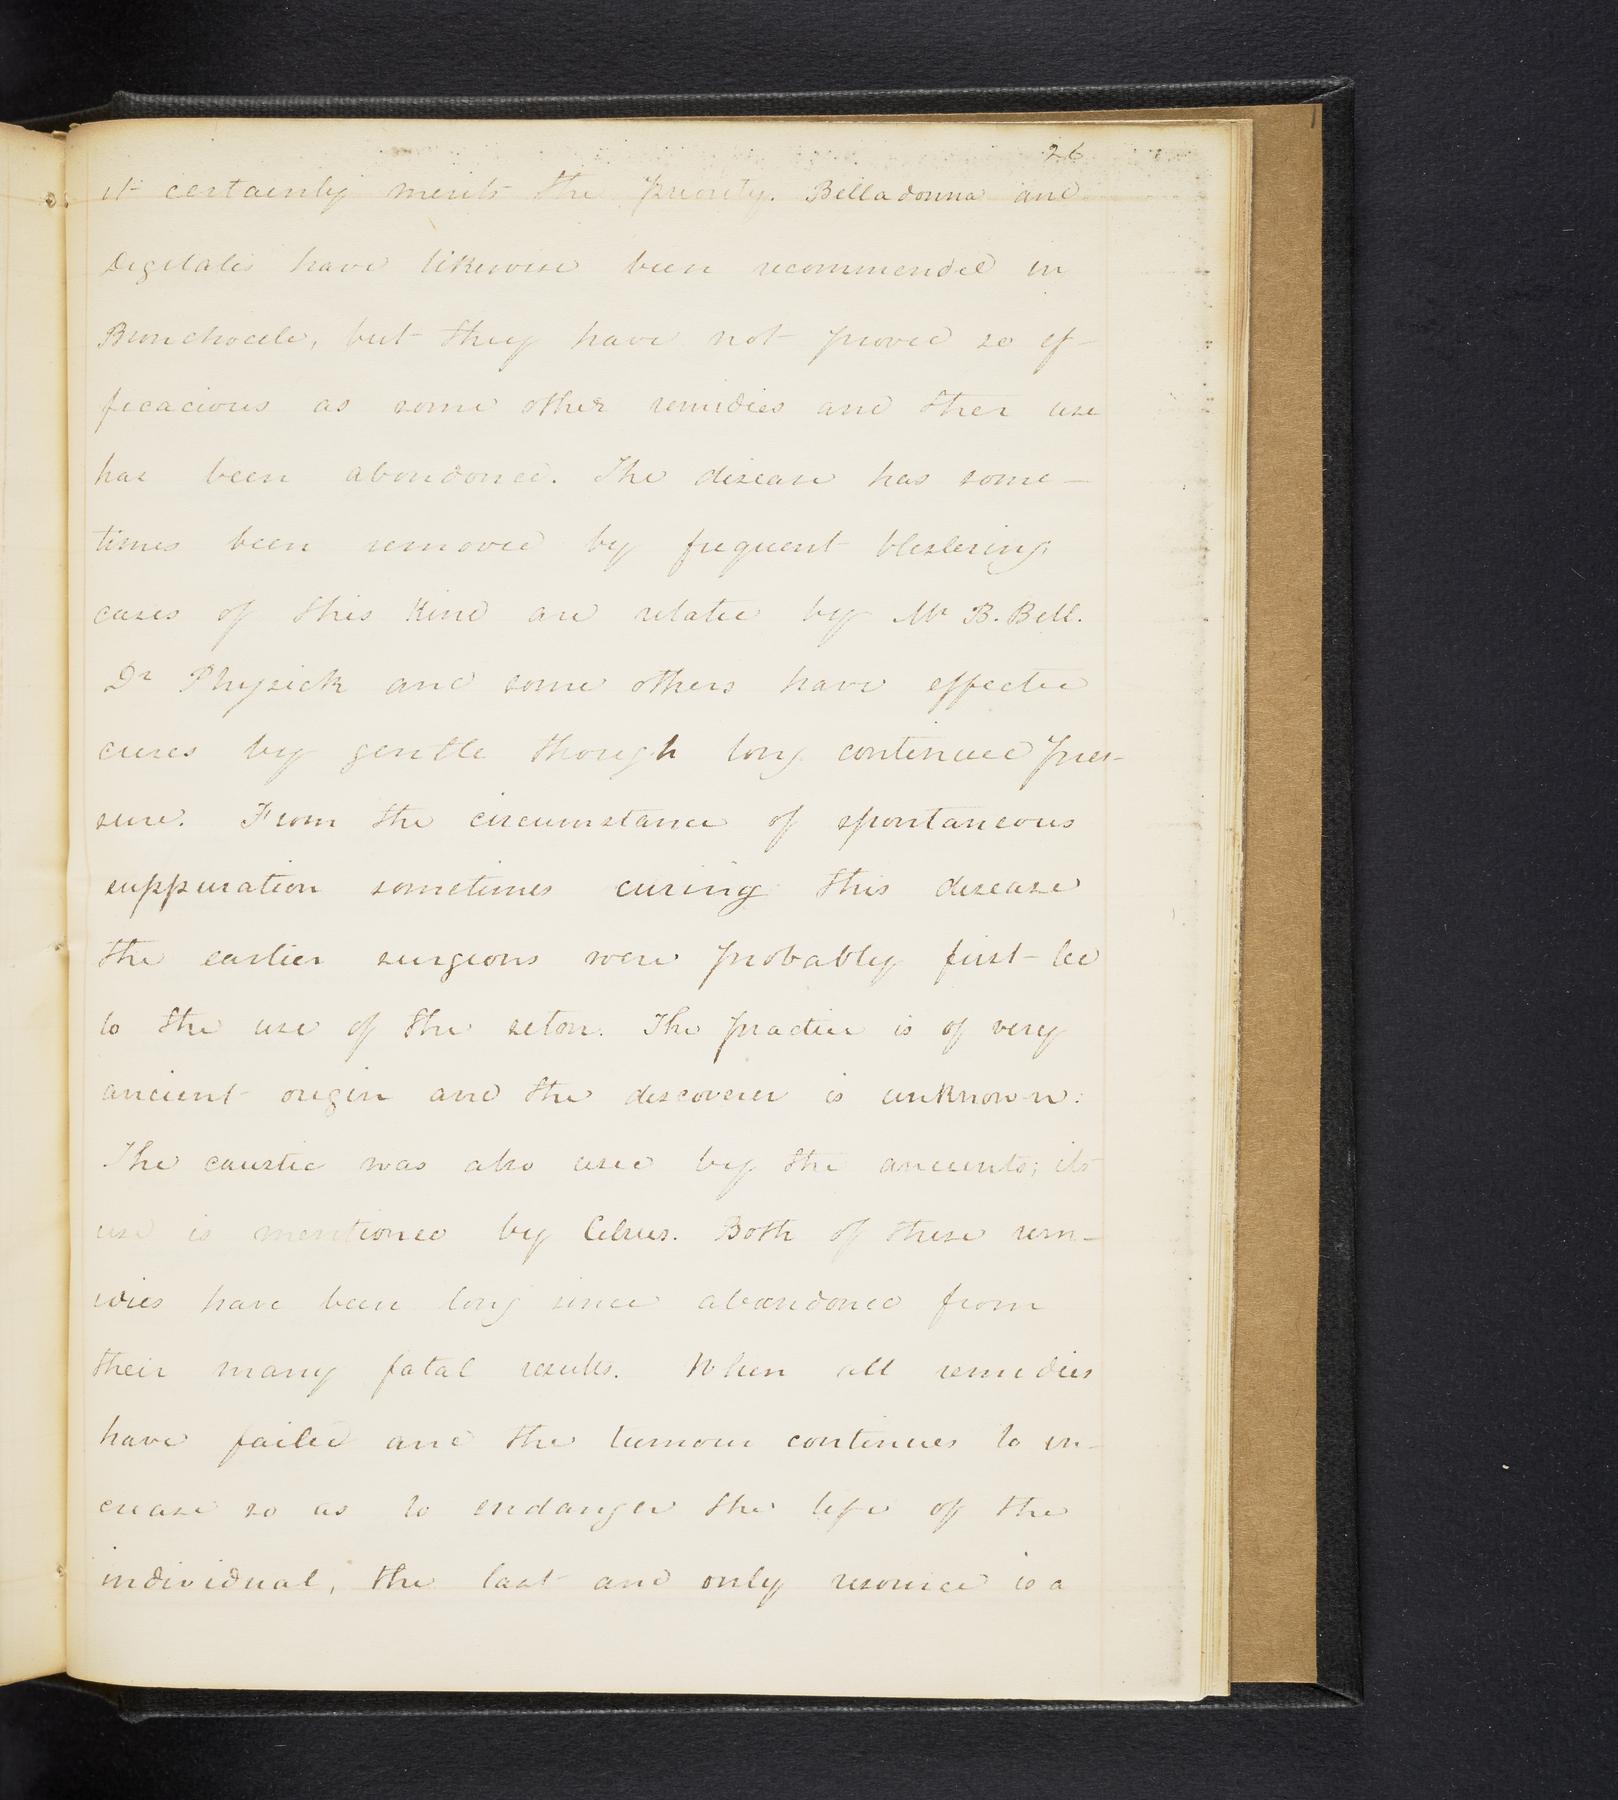 26
it certainly merits the priority. Belladonna and
Digitalis have likewise been recommended in
Bronchocele, but they have not proved so ef-
ficacious as some other remidies and ther use
has been abondoned. The disease has some-
times been removed by frequent blistering
cases of this kind are related by Mr B. Bell.
Dr Physick and some others have effected
cures by gentle though long continued pres-
sure. From the circumstance of spontaneous
suppuration sometimes curing this disease
the earlier surgeons were probably first led
to the use of the seton. The practice is of very
ancient origin and the discoverer is unknown.
The caustic was also used by the ancients; its
use is mentioned by Celsus. Both of these rem-
idies have been long since abandoned from
their many fatal results. When all remidies
have failed and the tumour continues to in-
crease so as to endanger the life of the
individual, the last and only resource is a